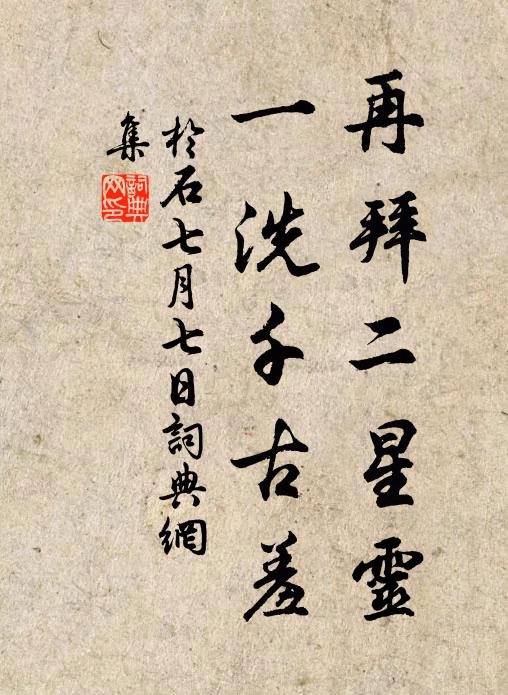 再拜二星靈
一洗千古羞
於石七月七日詞典網
集
詞典网印